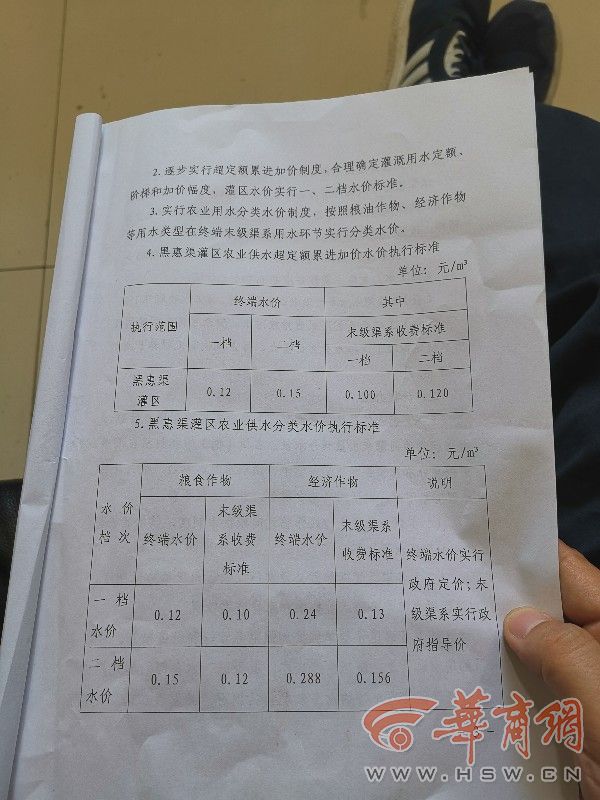 2. 逐步实行超定额累进加价制度，合理确定灌溉用水定额、
阶梯和加价幅度，灌区水价实行一、二档水价标准。
3. 实行农业用水分类水价制度，按照粮油作物、经济作物
等用水类型在终端末级渠系用水环节实行分类水价。
4. 黑惠渠灌区农业供水超定额累进加价水价执行标准
单位：元/m³
执行范围 终端水价 其中
一档 二档 末级渠系收费标准
一档 二档
黑惠渠
灌区 0.12 0.15 0.100 0.120
5. 黑惠渠灌区农业供水分类水价执行标准
单位：元/m³
水价
档次 粮食作物 经济作物 说明
终端水价 末级渠
系收费
标准 终端水价 末级渠系
收费标准
一档
水价 0.12 0.10 0.24 0.13
二档
水价 0.15 0.12 0.288 0.156
终端水价实行
政府定价；末
级渠系实行政
府指导价
華商網
WWW.HSW.CN